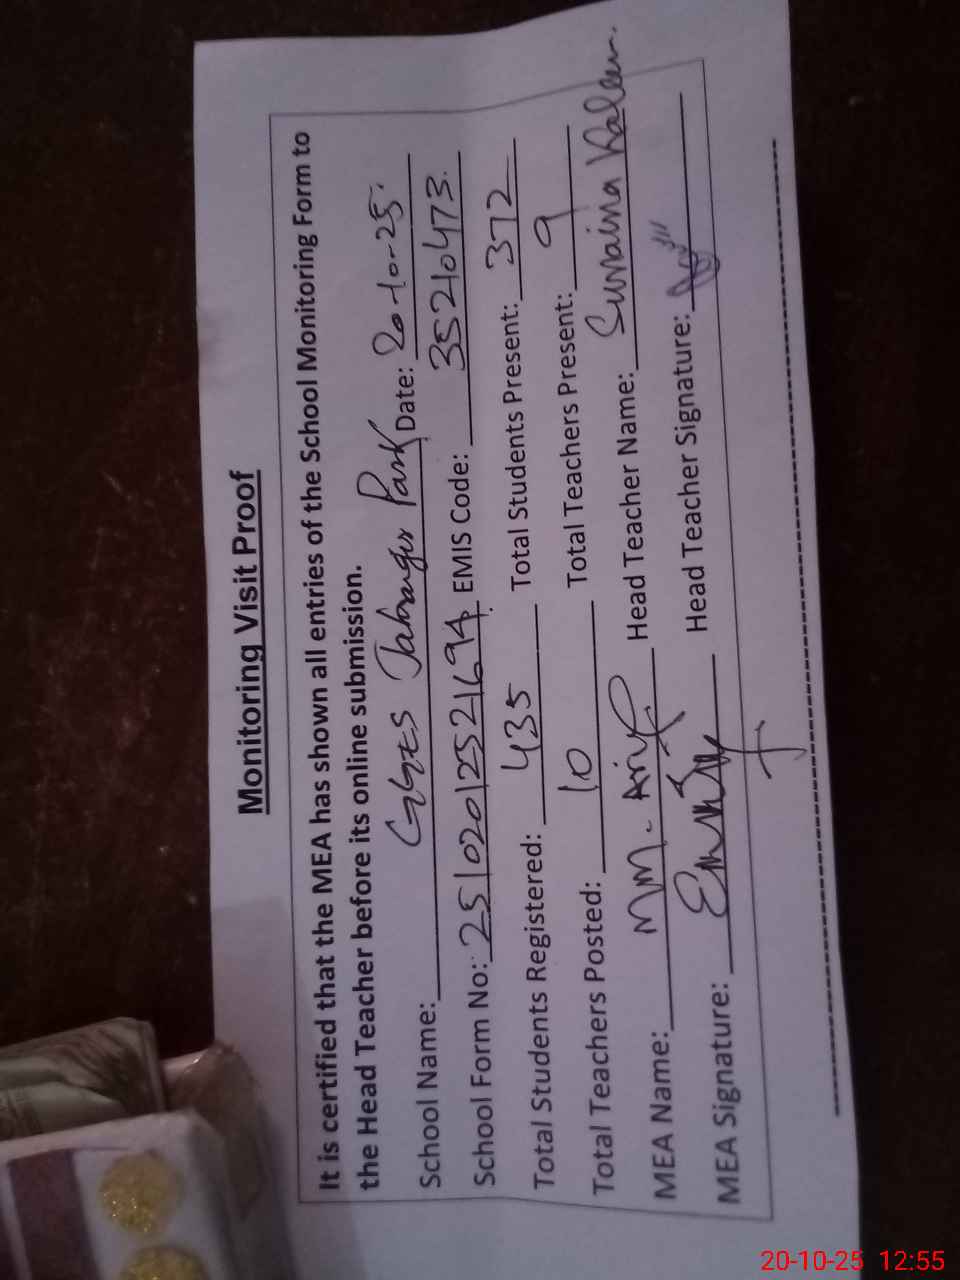 Monitoring Visit Proof
It is certified that the MEA has shown all entries of the School Monitoring Form to
the Head Teacher before its online submission.
School Name: GGES Jahangir Park Date: 20-10-25.
School Form No: 25102012521694. EMIS Code: 35210473.
Total Students Registered: 435 Total Students Present: 372
Total Teachers Posted: 10 Total Teachers Present: 9
MEA Name: MM. Arif Head Teacher Name: Sumaima Kaleem.
MEA Signature: Head Teacher Signature:
20-10-25 12:55